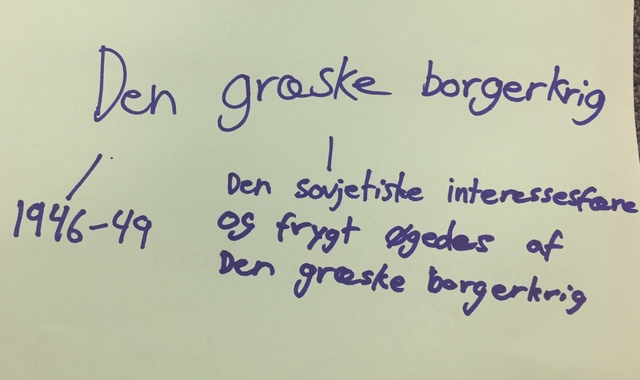 Den græske borgerkrig
1946-49
Den sovjetiske interessesfære
og frygt øgedes af
Den græske borgerkrig